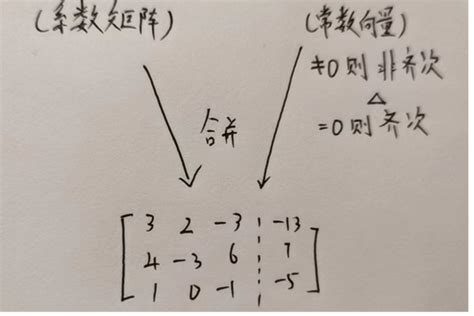 (系数矩阵) (常数向量)
≠0则非齐次
△
=0则齐次
合并
3 2 -3 -13
4 -3 6 7
1 0 -1 -5